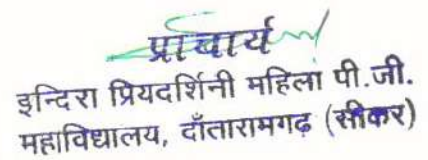 प्राचार्य
इन्दिरा प्रियदर्शिनी महिला पी.जी.
महाविद्यालय, दाँतारामगढ़ (सीकर)